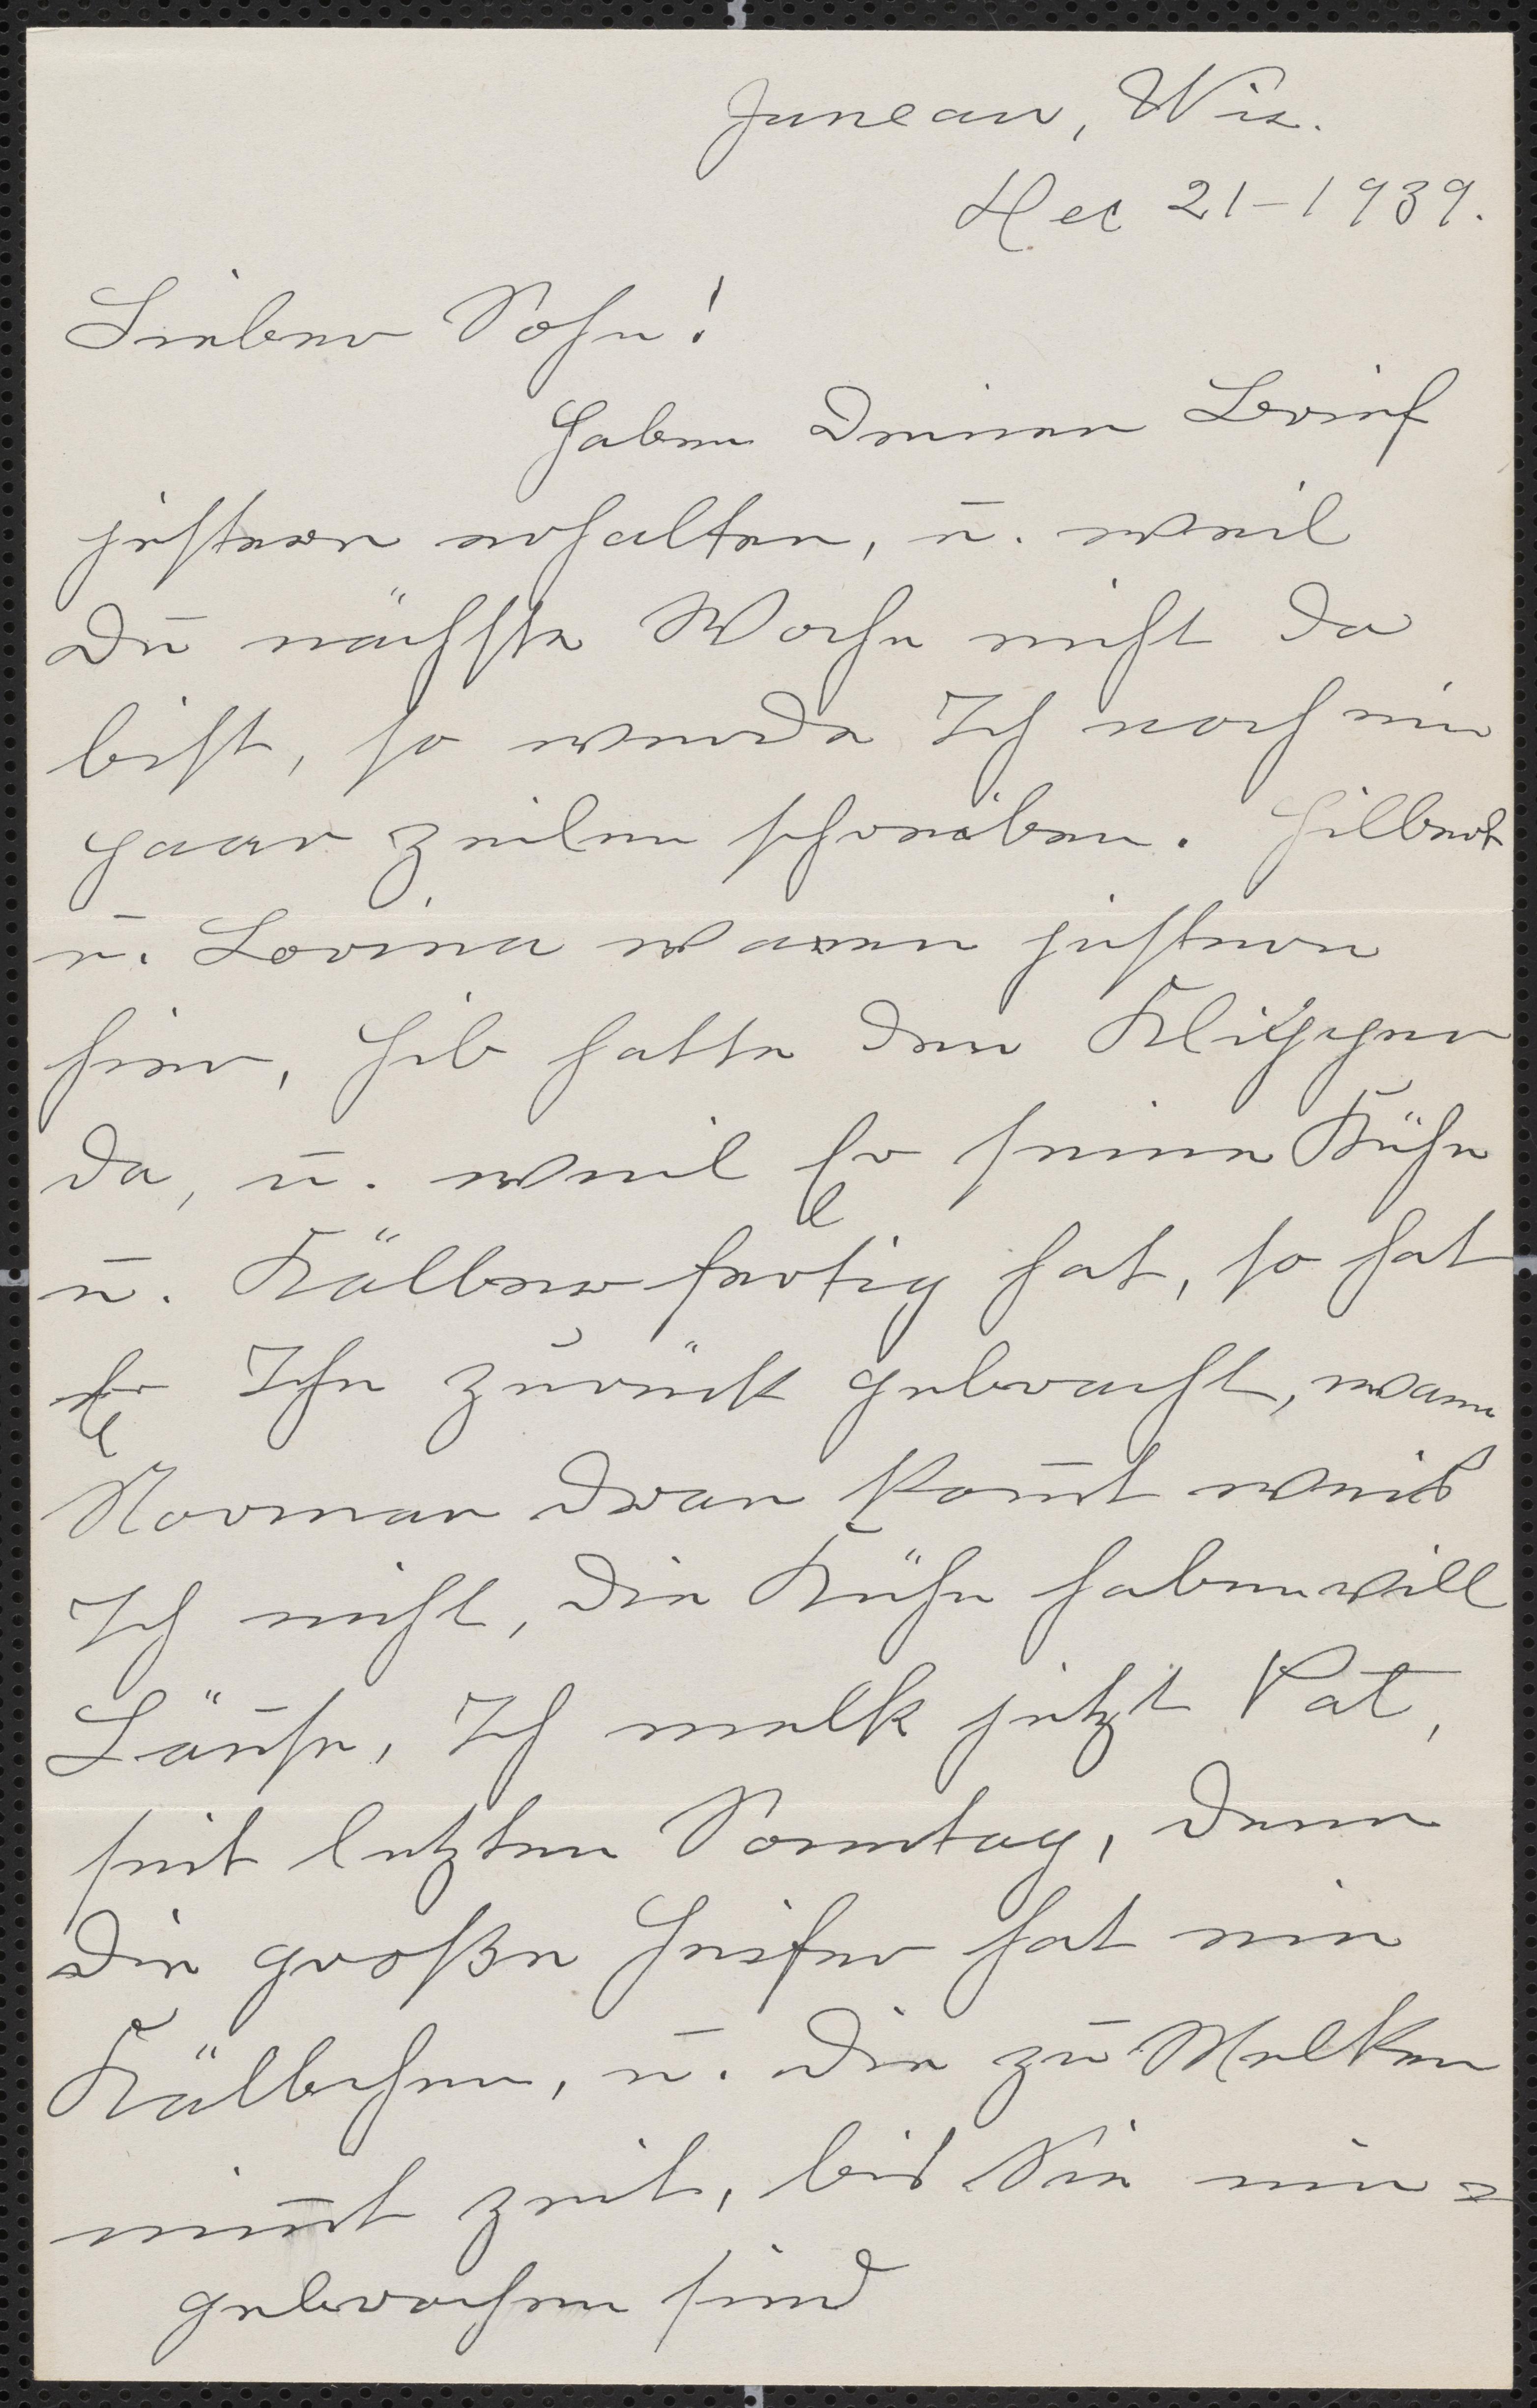 Juneau, Wis.
Dec 21-1939.
Lieber Sohn!
Haben Deinen Brief
jestern erhalten, u. weil
Du nächste Woche nicht da
bist, so werde Ich noch ein
paar zeilen schreiben. Hilbert
u. Lorina waren jestern
hier, Hib hatte den Klipper
da, u. weil Er seine Kühe
u. Kälber fertig hat, so hat
Er Ihn zurück gebracht, wann
Norman dran kom̄t weis
Ich nicht, die Kühe haben will
Läuse, Ich melk jetzt Pat,
seit letzten Sonntag, denn
die große Heifer hat ein
Kälbchen, u. die zu Melken
nim̄t zeit, bis Sie ein=
gebrochen sind